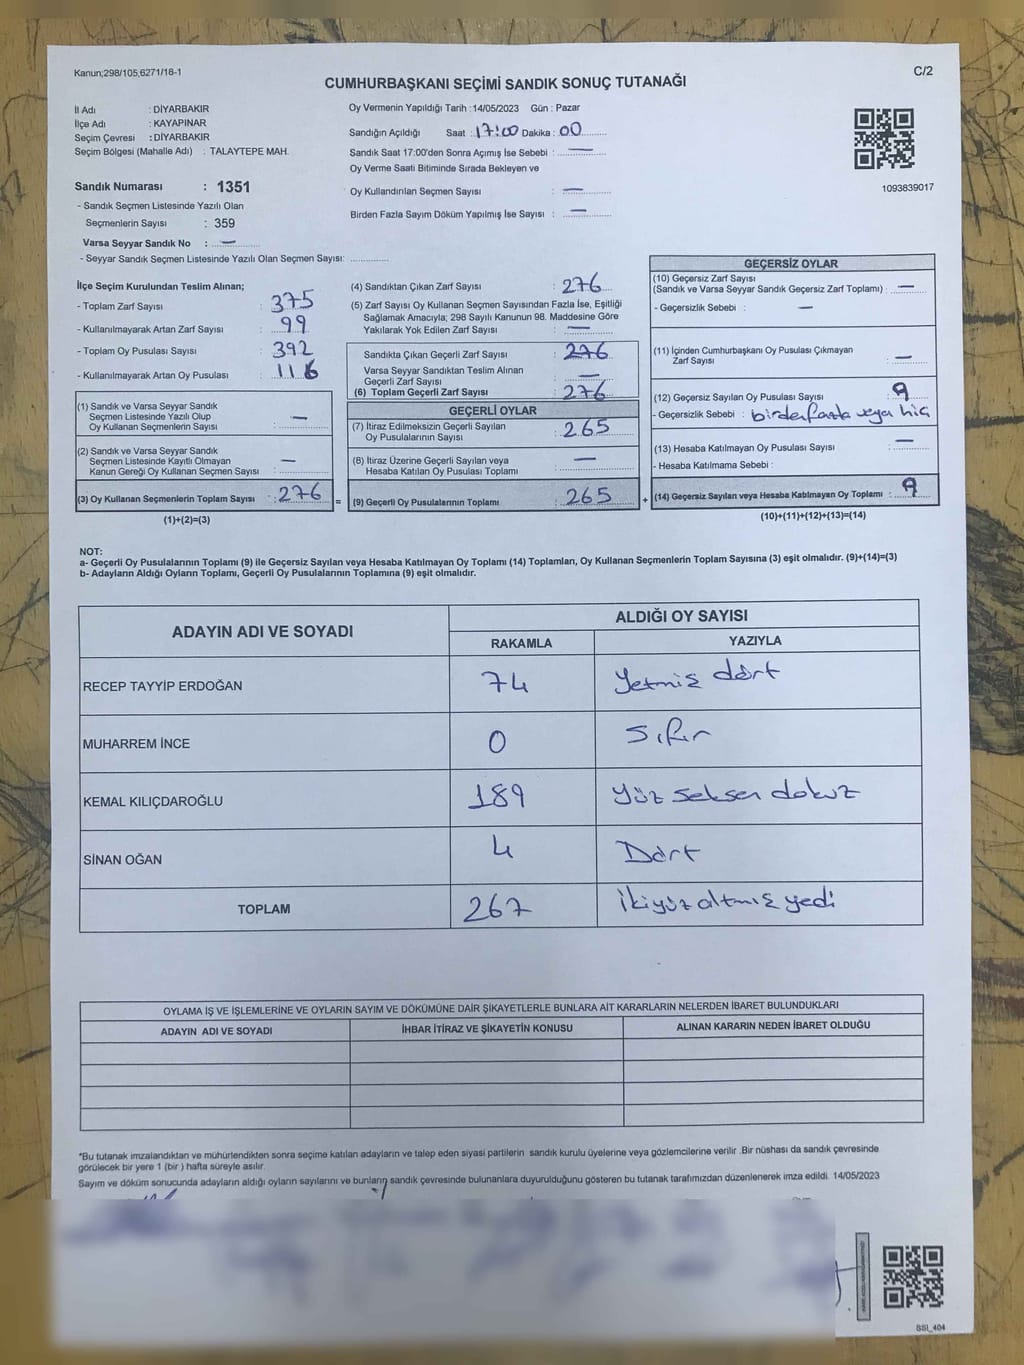 Kanun;298/105,6271/18-1
C/2
CUMHURBAŞKANI SEÇİMİ SANDIK SONUÇ TUTANAĞI
İl Adı : DİYARBAKIR
İlçe Adı : KAYAPINAR
Seçim Çevresi : DİYARBAKIR
Seçim Bölgesi (Mahalle Adı) : TALAYTEPE MAH.
Sandık Numarası : 1351
- Sandık Seçmen Listesinde Yazılı Olan
Seçmenlerin Sayısı : 359
Varsa Seyyar Sandık No : —
- Seyyar Sandık Seçmen Listesinde Yazılı Olan Seçmen Sayısı: ............
Oy Vermenin Yapıldığı Tarih : 14/05/2023 Gün : Pazar
Sandığın Açıldığı Saat : 17:00 Dakika : 00
Sandık Saat 17:00'den Sonra Açımış İse Sebebi : —
Oy Verme Saati Bitiminde Sırada Bekleyen ve
Oy Kullandırılan Seçmen Sayısı : —
Birden Fazla Sayım Döküm Yapılmış İse Sayısı : —
1093839017
İlçe Seçim Kurulundan Teslim Alınan;
- Toplam Zarf Sayısı : 375
- Kullanılmayarak Artan Zarf Sayısı : 99
- Toplam Oy Pusulası Sayısı : 392
- Kullanılmayarak Artan Oy Pusulası : 116
(1) Sandık ve Varsa Seyyar Sandık
Seçmen Listesinde Yazılı Olup
Oy Kullanan Seçmenlerin Sayısı : —
(2) Sandık ve Varsa Seyyar Sandık
Seçmen Listesinde Kayıtlı Olmayan
Kanun Gereği Oy Kullanan Seçmen Sayısı : —
(3) Oy Kullanan Seçmenlerin Toplam Sayısı : 276 =
(1)+(2)=(3)
(4) Sandıktan Çıkan Zarf Sayısı : 276
(5) Zarf Sayısı Oy Kullanan Seçmen Sayısından Fazla İse, Eşitliği
Sağlamak Amacıyla; 298 Sayılı Kanunun 98. Maddesine Göre
Yakılarak Yok Edilen Zarf Sayısı : —
Sandıkta Çıkan Geçerli Zarf Sayısı : 276
Varsa Seyyar Sandıktan Teslim Alınan
Geçerli Zarf Sayısı : —
(6) Toplam Geçerli Zarf Sayısı : 276
GEÇERLİ OYLAR
(7) İtiraz Edilmeksizin Geçerli Sayılan
Oy Pusulalarının Sayısı : 265
(8) İtiraz Üzerine Geçerli Sayılan veya
Hesaba Katılan Oy Pusulası Toplamı : —
(9) Geçerli Oy Pusulalarının Toplamı : 265 +
GEÇERSİZ OYLAR
(10) Geçersiz Zarf Sayısı
(Sandık ve Varsa Seyyar Sandık Geçersiz Zarf Toplamı) : —
- Geçersizlik Sebebi : —
(11) İçinden Cumhurbaşkanı Oy Pusulası Çıkmayan
Zarf Sayısı : —
(12) Geçersiz Sayılan Oy Pusulası Sayısı : 9
- Geçersizlik Sebebi : birden fazla veya hiç
(13) Hesaba Katılmayan Oy Pusulası Sayısı : —
- Hesaba Katılmama Sebebi :
(14) Geçersiz Sayılan veya Hesaba Katılmayan Oy Toplamı : 9
(10)+(11)+(12)+(13)=(14)
NOT:
a- Geçerli Oy Pusulalarının Toplamı (9) ile Geçersiz Sayılan veya Hesaba Katılmayan Oy Toplamı (14) Toplamları, Oy Kullanan Seçmenlerin Toplam Sayısına (3) eşit olmalıdır. (9)+(14)=(3)
b- Adayların Aldığı Oyların Toplamı, Geçerli Oy Pusulalarının Toplamına (9) eşit olmalıdır.
ADAYIN ADI VE SOYADI
ALDIĞI OY SAYISI
RAKAMLA YAZIYLA
RECEP TAYYİP ERDOĞAN 74 Yetmiş dört
MUHARREM İNCE 0 Sıfır
KEMAL KILIÇDAROĞLU 189 Yüz seksen dokuz
SİNAN OĞAN 4 Dört
TOPLAM 267 İkiyüz altmış yedi
OYLAMA İŞ VE İŞLEMLERİNE VE OYLARIN SAYIM VE DÖKÜMÜNE DAİR ŞİKAYETLERLE BUNLARA AİT KARARLARIN NELERDEN İBARET BULUNDUKLARI
ADAYIN ADI VE SOYADI İHBAR İTİRAZ VE ŞİKAYETİN KONUSU ALINAN KARARIN NEDEN İBARET OLDUĞU
*Bu tutanak imzalandıktan ve mühürlendikten sonra seçime katılan adayların ve talep eden siyasi partilerin sandık kurulu üyelerine veya gözlemcilerine verilir .Bir nüshası da sandık çevresinde
görülecek bir yere 1 (bir ) hafta süreyle asılır.
Sayım ve döküm sonucunda adayların aldığı oyların sayılarını ve bunların sandık çevresinde bulunanlara duyurulduğunu gösteren bu tutanak tarafımızdan düzenlenerek imza edildi. 14/05/2023
SSI_404